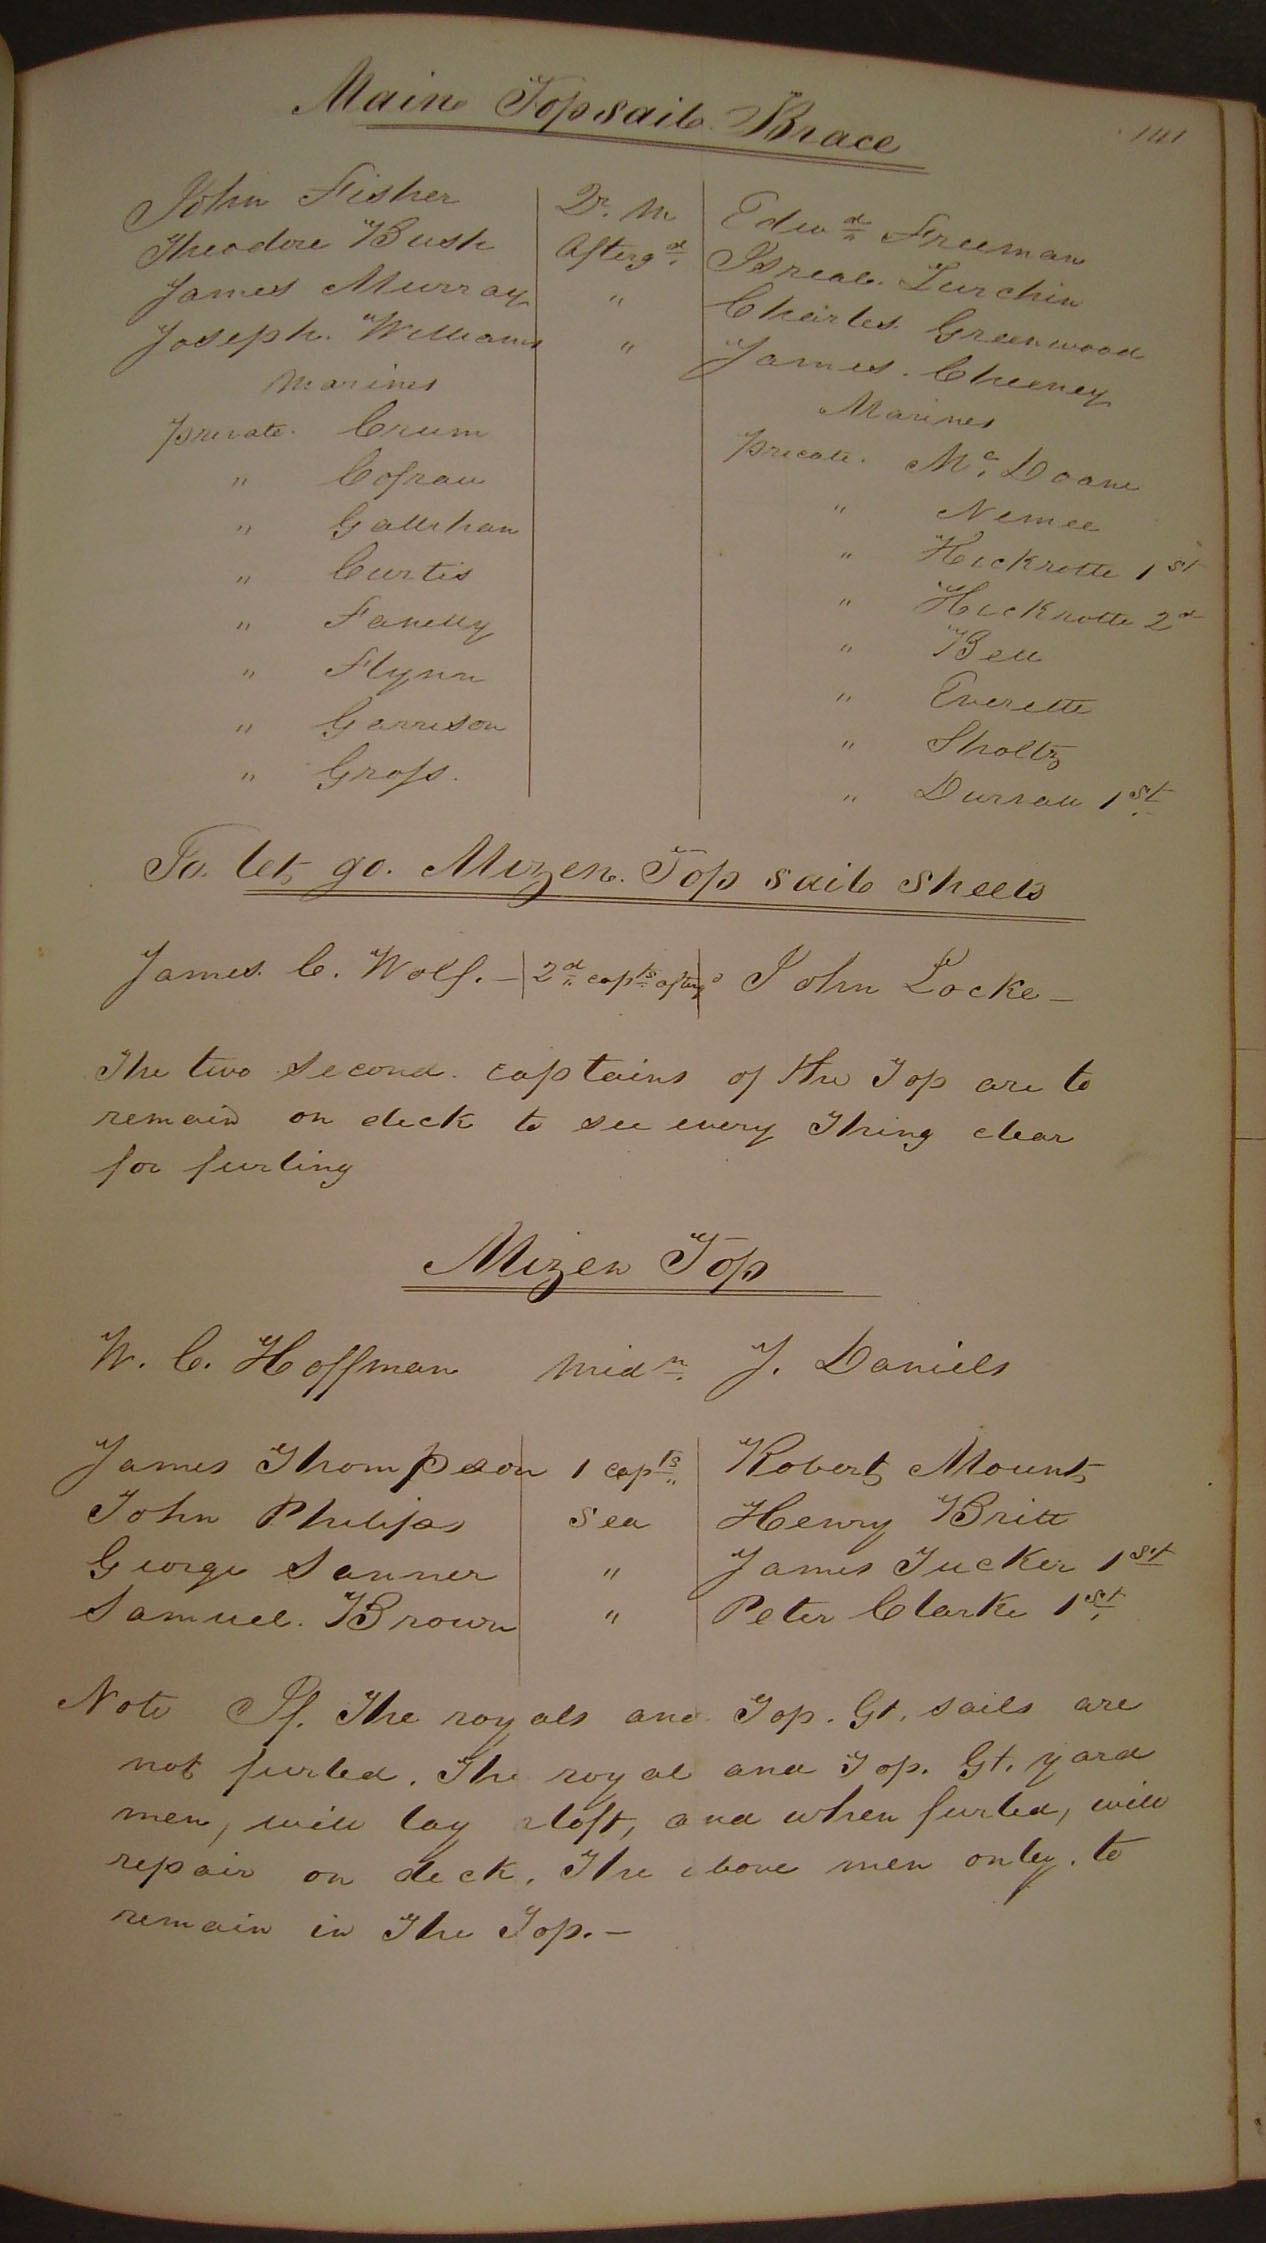 Main Topsail Brace
141
John Fisher Qr. M Edwd Freeman
Theodore Bush Afterg.d Isreal Turchin
James Murray " Charles Greenwood
Joseph. Williams " James. Cheeney
Marines Marines
private. Crum private. Mc. Doane
" Cofrau " Nemee
" Gallihan " Heckrotte 1st
" Curtis " Heckrotte 2d
" Fanelly " Bell
" Flynn " Everette
" Garrison " Sholtz
" Gross. " Durrau 1st.
To. let go. Mizen. Top sail sheets
James. C. Wolf. – 2d capts afterg d John Locke –
The two second. captains of the Top are to
remain on deck to see every Thing clear
for furling
Mizen Top
W. C. Hoffman Midn. J. Daniels
James Thompson 1 capts Robert Mount
John Philips Sea Henry Britt
George Sanner " James Tucker 1st
Samuel. Brown " Peter Clarke 1st.
Note If. The royals and Top. Gt. sails are
not furled. The royal and Top. Gt. yard
men, will lay aloft, and when furled, will
repair on deck. The above men only. to
remain in The Top. –